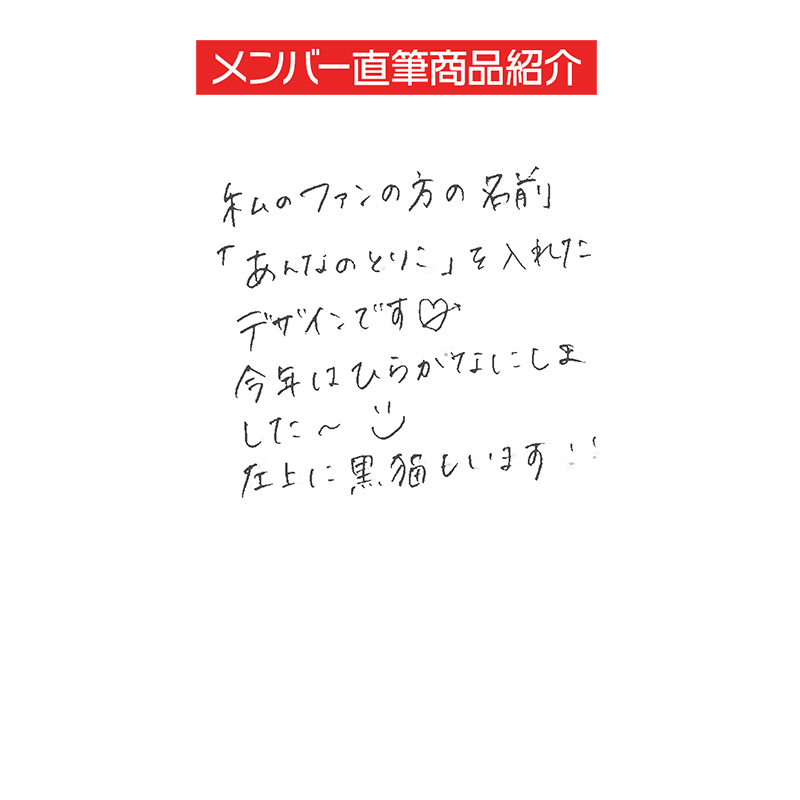 メンバー直筆商品紹介
私のファンの方の名前
「あんなのとりこ」を入れた
デザインです♡
今年はひらがなにしま
した～
左上に黒猫もいます！！